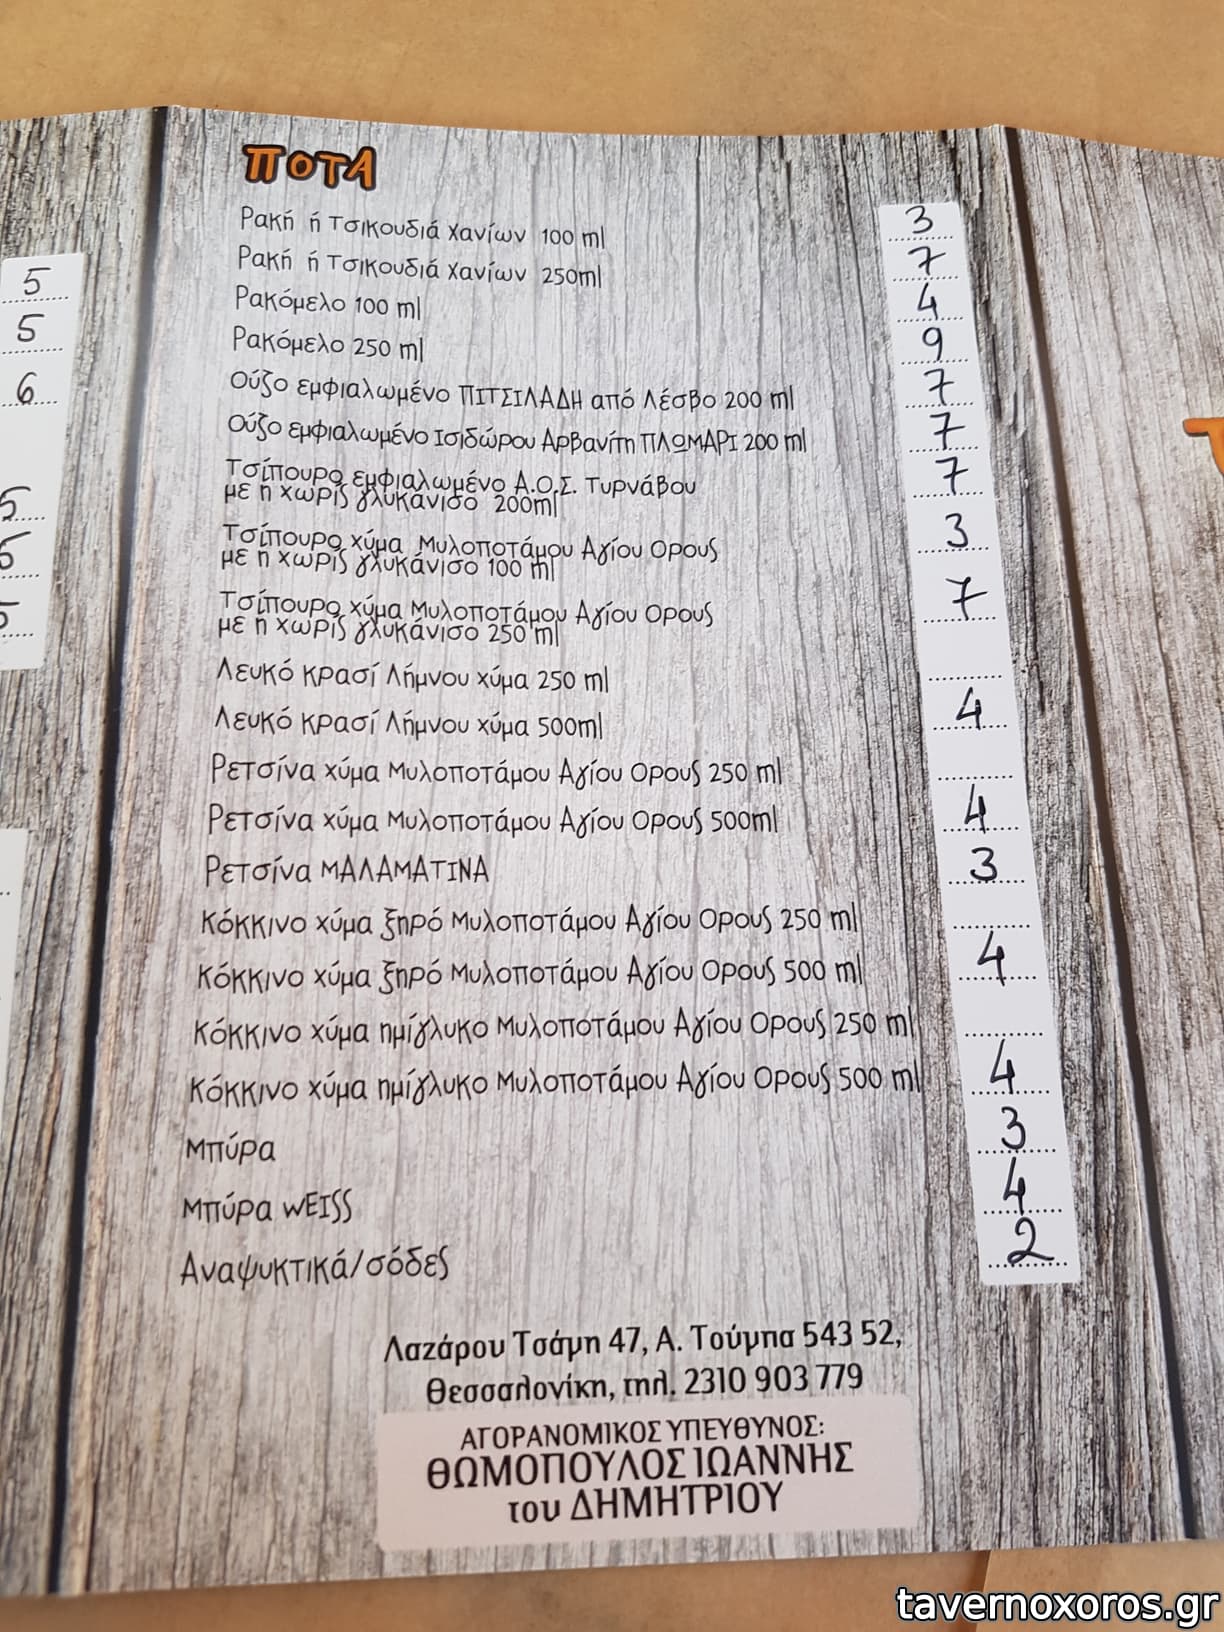 ΠΟΤΑ
Ρακή ή Τσικουδιά Χανίων 100 ml 3
Ρακή ή Τσικουδιά Χανίων 250ml 7
Ρακόμελο 100 ml 4
Ρακόμελο 250 ml 9
Ούζο εμφιαλωμένο ΠΙΤΣΙΛΑΔΗ από Λέσβο 200 ml 7
Ούζο εμφιαλωμένο Ισιδώρου Αρβανίτη ΠΛΩΜΑΡΙ 200 ml 7
Τσίπουρο εμφιαλωμένο Α.Ο.Σ. Τυρνάβου 7
με η χωρίς γλυκάνισο 200ml
Τσίπουρο χύμα Μυλοποτάμου Αγίου Ορους 3
με η χωρίς γλυκάνισο 100 ml
Τσίπουρο χύμα Μυλοποτάμου Αγίου Ορους 7
με η χωρίς γλυκάνισο 250 ml
Λευκό κρασί Λήμνου χύμα 250 ml
Λευκό κρασί Λήμνου χύμα 500ml 4
Ρετσίνα χύμα Μυλοποτάμου Αγίου Ορους 250 ml
Ρετσίνα χύμα Μυλοποτάμου Αγίου Ορους 500ml 4
Ρετσίνα ΜΑΛΑΜΑΤΙΝΑ 3
Κόκκινο χύμα ξηρό Μυλοποτάμου Αγίου Ορους 250 ml
Κόκκινο χύμα ξηρό Μυλοποτάμου Αγίου Ορους 500 ml 4
Κόκκινο χύμα ημίγλυκο Μυλοποτάμου Αγίου Ορους 250 ml
Κόκκινο χύμα ημίγλυκο Μυλοποτάμου Αγίου Ορους 500 ml 4
Μπύρα 3
Μπύρα WEISS 4
Αναψυκτικά/σόδες 2
Λαζάρου Τσάμη 47, Α. Τούμπα 543 52,
Θεσσαλονίκη, τηλ. 2310 903 779
ΑΓΟΡΑΝΟΜΙΚΟΣ ΥΠΕΥΘΥΝΟΣ:
ΘΩΜΟΠΟΥΛΟΣ ΙΩΑΝΝΗΣ
του ΔΗΜΗΤΡΙΟΥ
5
5
6
5
5
5
tavernoxoros.gr